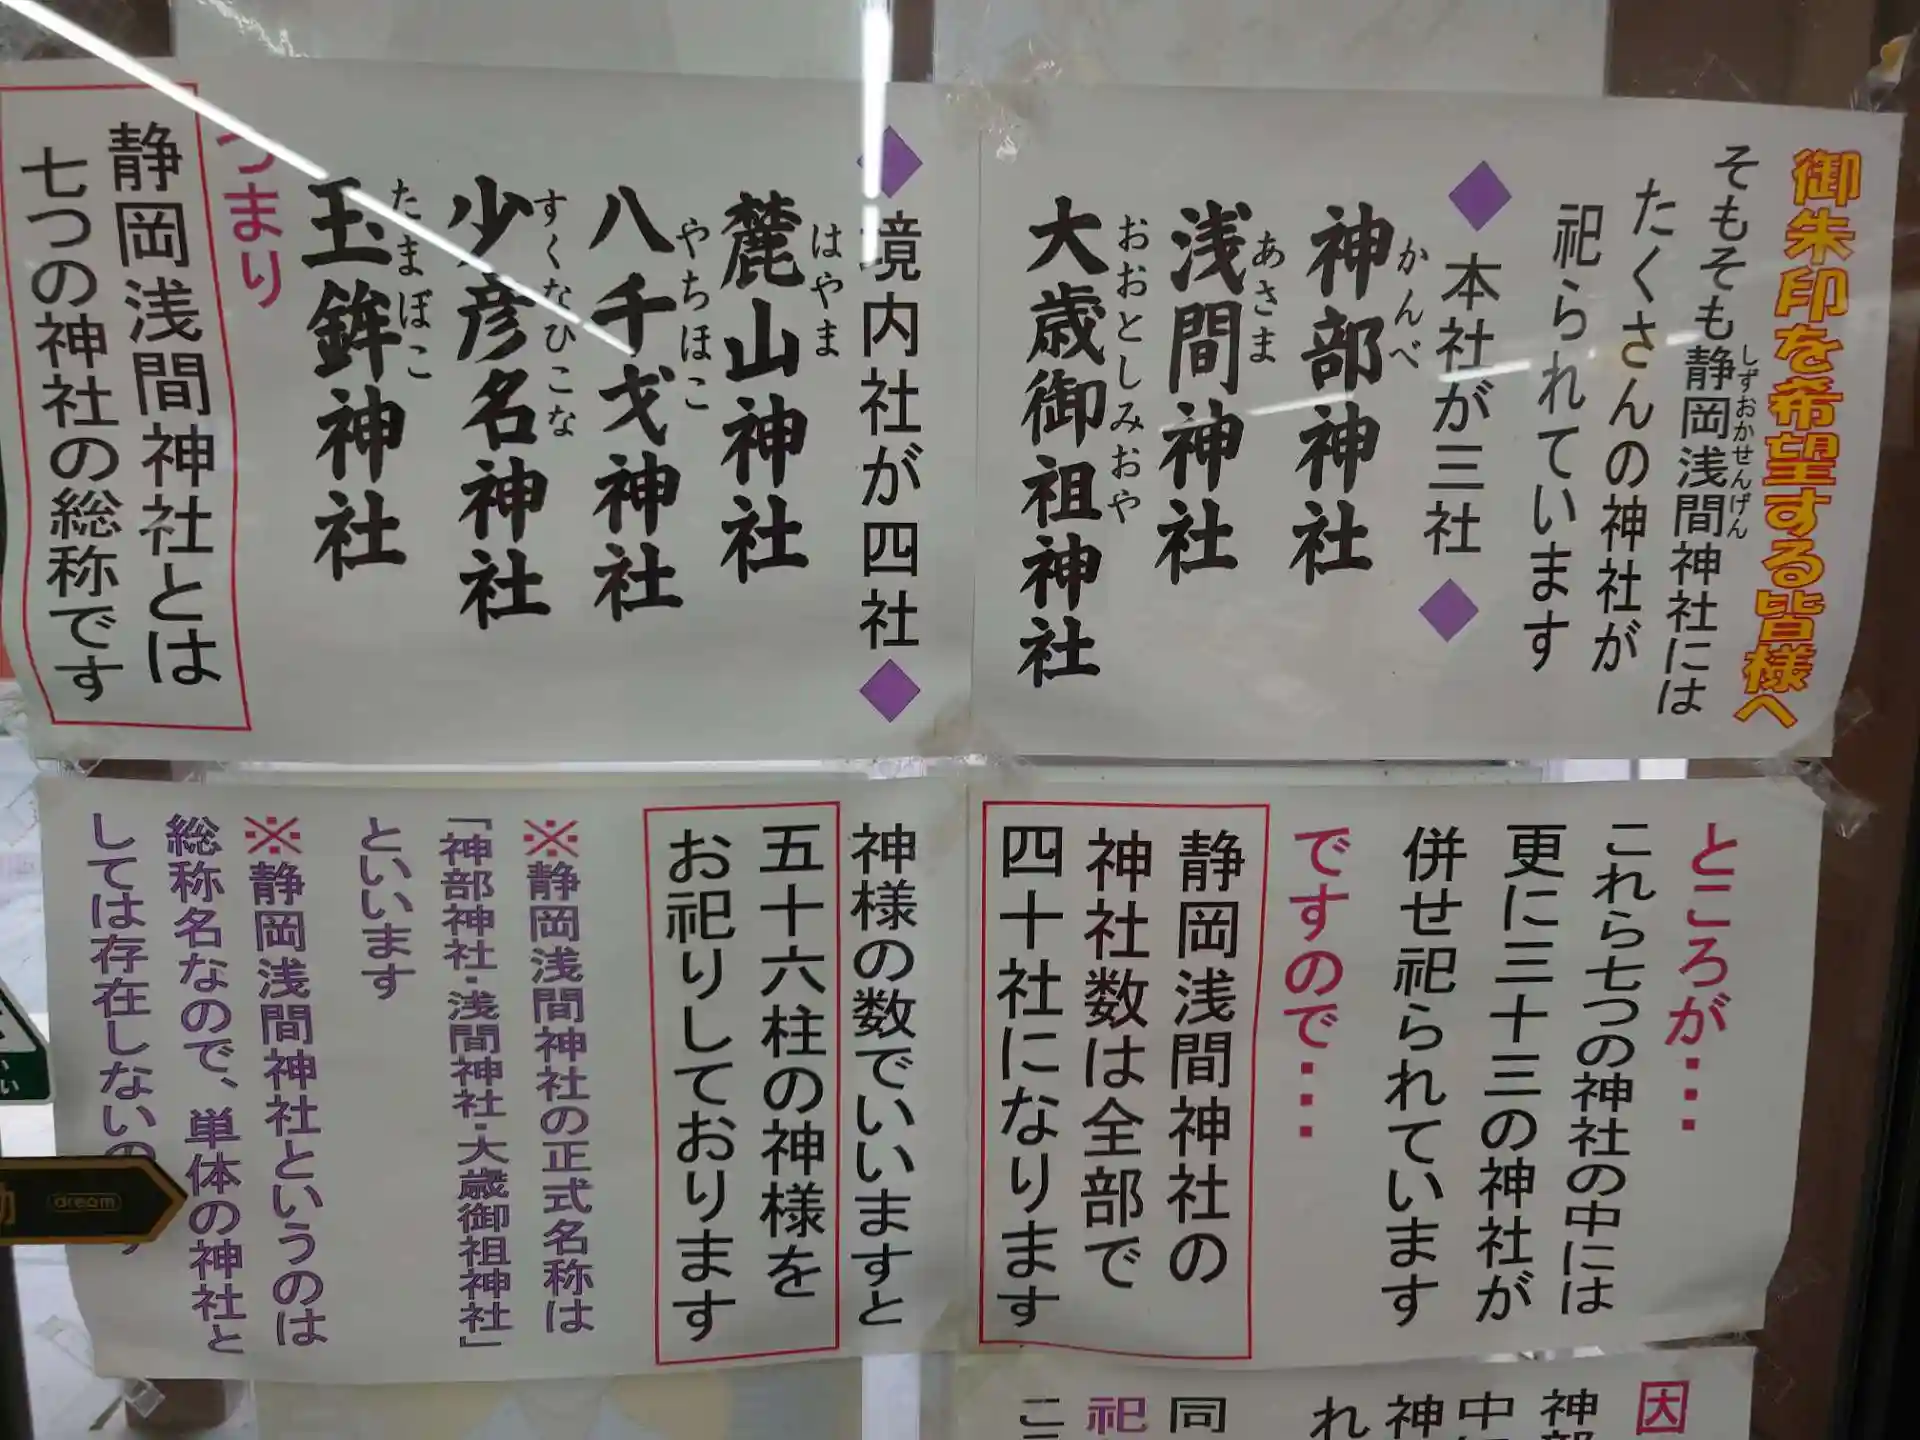 御朱印を希望する皆様へ
そもそも静岡浅間神社には
しずおかせんげん
たくさんの神社が
祀られています
◆本社が三社◆
神部神社
かんべ
浅間神社
あさま
大歳御祖神社
おおとしみおや
◆境内社が四社◆
麓山神社
はやま
八千戈神社
やちほこ
少彦名神社
すくなひこな
玉鉾神社
たまぼこ
つまり
静岡浅間神社とは
七つの神社の総称です
ところが・・・
これら七つの神社の中には
更に三十三の神社が
併せ祀られています
ですので・・・
静岡浅間神社の
神社数は全部で
四十社になります
神様の数でいいますと
五十六柱の神様を
お祀りしております
※静岡浅間神社の正式名称は
「神部神社・浅間神社・大歳御祖神社」
といいます
※静岡浅間神社というのは
総称名なので、単体の神社と
しては存在しないの
因
神部
中
神
れ
同
祀
こ
dream